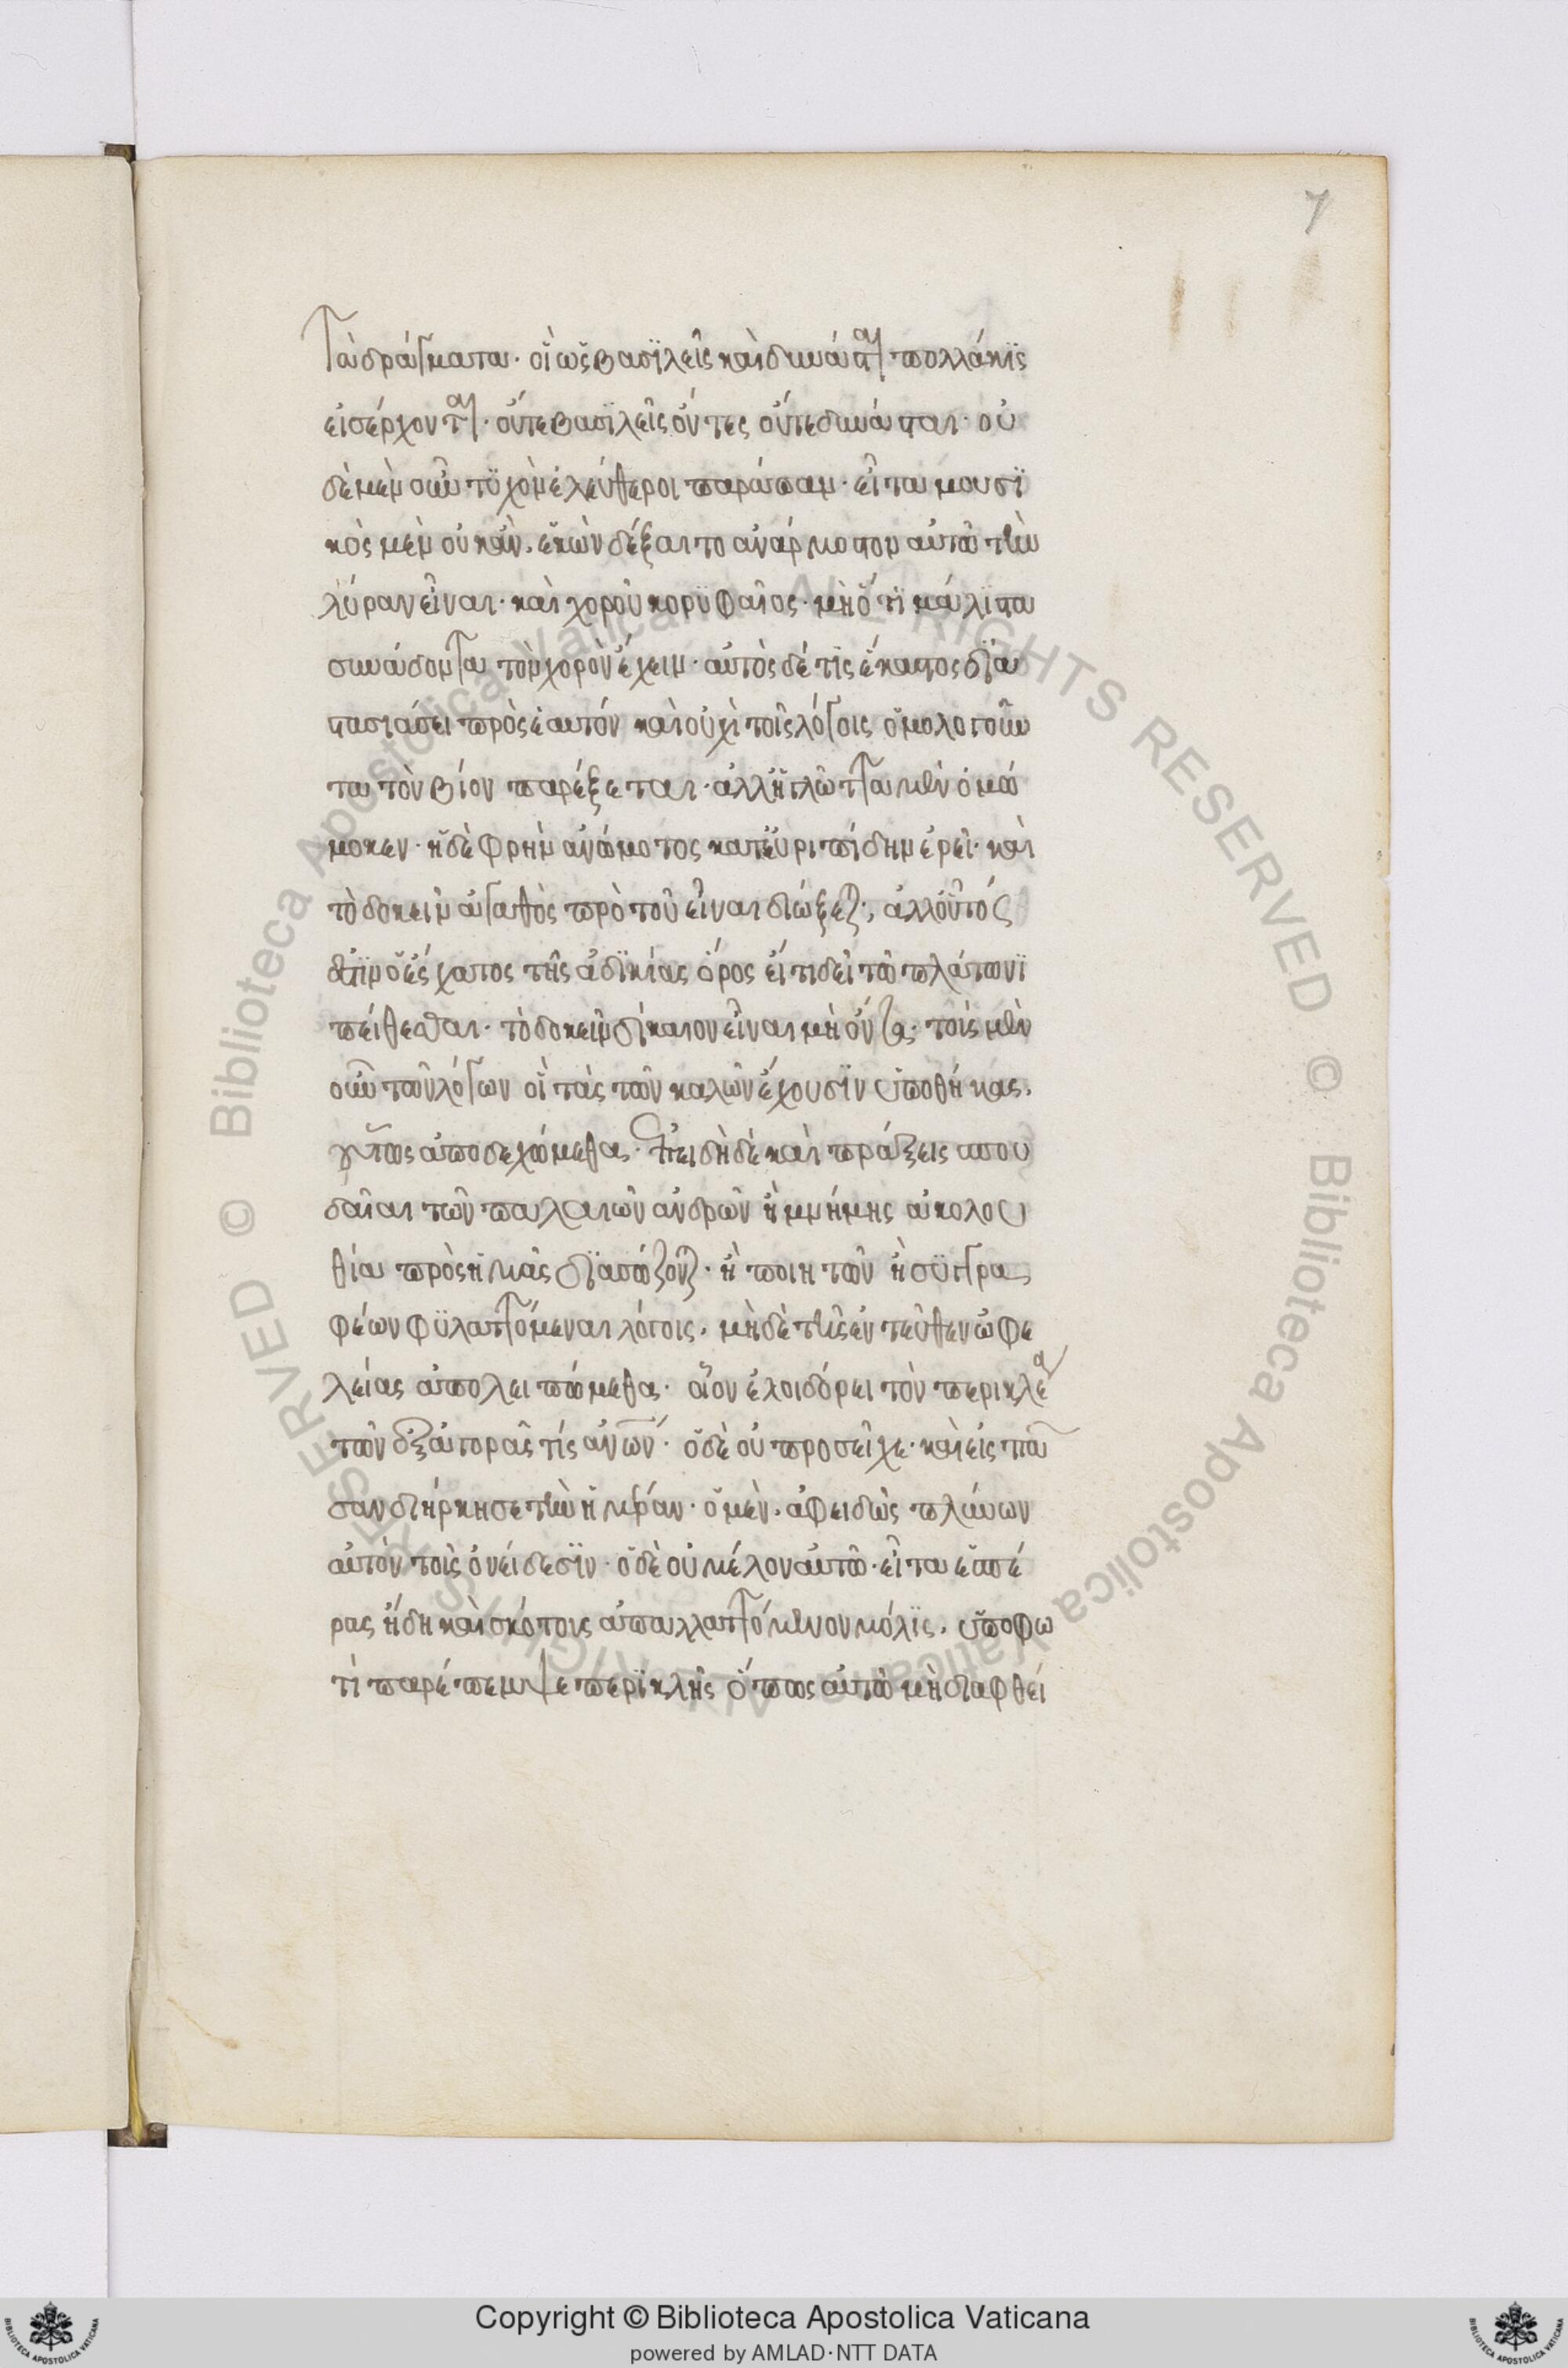 7
τὰ δράσματα· οἳ ὡς βασϊλεῖς καὶ δυνάσται πολλάκϊς
εἰσέρχονται· οὔτε βασϊλεῖς ὄντες οὔτε δυνάσται· οὐ
δὲ μὲν οὖν τϋχὸν ἐλεύθεροι παράπαν· εἶτα μουσϊ
κὸς μὲν οὐκ ἂν, ἑκὼν δέξαιτο ἀνάρμοστον αὐτῶ τὴν
λύραν εἶναι· καὶ χοροῦ κορϋφαῖος· μὴ ὅτϊ μάλϊστα
συνάδοντα τὸν χορὸν ἔχειν· αὐτὸς δέ τϊς ἕκαστος δϊα
στασιάσει πρὸς ἑαυτόν καὶ οὐχὶ τοῖς λόγοις ὁμολογοῦν
τα τὸν βίον παρέξεται· ἀλλ' ἡ γλῶττα μὲν ὀμώ
μοκεν· ἡ δὲ φρὴν ἀνώμοτος κατ' εὐριπίδην ἐρεῖ· καὶ
τὸ δοκεῖν ἀγαθὸς πρὸ τοῦ εἶναι διώξεται, ἀλλ' οὗτός
ἐστϊν ὁ ἔσχατος τῆς ἀδϊκίας ὅρος εἴ τι δεῖ τῶ πλάτωνϊ
πείθεσθαι· τὸ δοκεῖν δίκαιον εἶναι μὴ ὄντα· τοῖς μὲν
οὖν τῶν λόγων οἳ τὰς τῶν καλῶν ἔχουσϊν ὑποθήκας,
οὕτως ἀποδεχώμεθα· ἐπειδὴ δὲ καὶ πράξεις σπου
δαῖαι τῶν παλαιῶν ἀνδρῶν ἢ μνήμης ἀκολου
θία πρὸς ἡμᾶς δϊασώζονται· ἢ ποιητῶν ἢ σϋγγρα
φέων φϋλαττόμεναι λόγοις, μὴ δὲ τῆς ἐντεῦθεν ὠφε
λείας ἀπολειπώμεθα· οἷον ἐλοιδόρει τὸν περικλέα
τῶν ἐξ ἀγορᾶς τίς ἀνῶν· ὁ δὲ οὐ προσεῖχε· καὶ εἰς πᾶ
σαν διήρκησε τὴν ἡμέραν· ὁ μὲν, ἀφειδῶς πλύνων
αὐτὸν τοῖς ὀνείδεσϊν· ὁ δὲ οὐ μέλον αὐτῶ· εἶτα ἑσπέ
ρας ἤδη καὶ σκότους ἀπαλλαττόμενον μόλϊς, ὑπὸ φω
τὶ παρέπεμψε περϊκλῆς ὅπως αὐτῶ μὴ διαφθεί
Copyright © Biblioteca Apostolica Vaticana
powered by AMLAD·NTT DATA